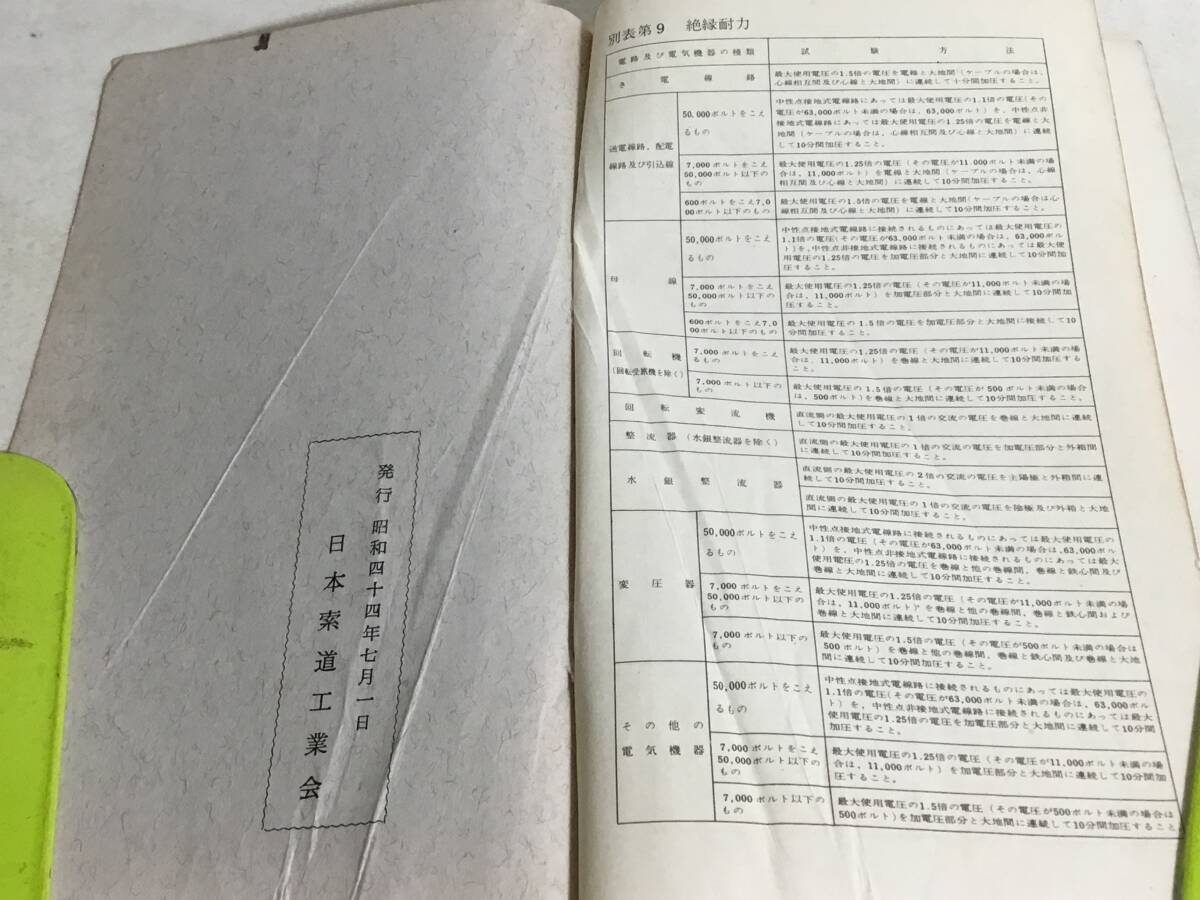 発行 昭和四十四年七月一日
日本索道工業会
別表第9 絶縁耐力
電路及び電気機器の種類
試験方法
き電線路
最大使用電圧の1.5倍の電圧を電線と大地間(ケーブルの場合は、
心線相互間及び心線と大地間)に連続して十分間加圧すること。
送電線路、配電
線路及び引込線
50.000ボルトをこえ
るもの
中性点接地式電線路にあっては最大使用電圧の1.1倍の電圧(その
電圧が63,000ボルト未満の場合は、63,000ボルト)を、中性点非
接地式電線路にあっては最大使用電圧の1.25倍の電圧を電線と大
地間(ケーブルの場合は、心線相互間及び心線と大地間)に連続
して10分間加圧すること。
7,000ボルトをこえ
50,000ボルト以下の
もの
最大使用電圧の1.25倍の電圧(その電圧が11.000ボルト未満の場
合は、11,000ボルト)を電線と大地間(ケーブルの場合は、心線
相互間及び心線と大地間)に連続して10分間加圧すること。
600ボルトをこえ7,0
00ボルト以下のもの
最大使用電圧の1.5倍の電圧を電線と大地間(ケーブルの場合は心
線相互間及び心線と大地間)に連続して10分間加圧すること。
母線
50,000ボルトをこえ
るもの
中性点接地式電線路に接続されるものにあっては最大使用電圧の
1.1倍の電圧(その電圧が63,000ボルト未満の場合は、63,000ボル
ト)を、中性点非接地式電線路に接続されるものにあっては最大使
用電圧の1.25倍の電圧を加電圧部分と大地間に連続して10分間加
圧すること。
7,000ボルトをこえ
50,000ボルト以下の
もの
最大使用電圧の1.25倍の電圧(その電圧が11,000ボルト未満の場
合は、11,000ボルト)を加電圧部分と大地間に連続して10分間加
圧すること。
600ボルトをこえ7,0
00ボルト以下のもの
最大使用電圧の1.5倍の電圧を加電圧部分と大地間に接続して10
分間加圧すること。
回転機
(回転変流機を除く)
7,000ボルトをこえ
るもの
最大使用電圧の1.25倍の電圧(その電圧が11,000ボルト未満の場
合は、11,000ボルト)を巻線と大地間に連続して10分間加圧するこ
と。
7,000ボルト以下の
もの
最大使用電圧の1.5倍の電圧(その電圧が500ボルト未満の場合
は、500ボルト)を巻線と大地間に連続して10分間加圧すること。
回転変流機
直流側の最大使用電圧の1倍の交流の電圧を巻線と大地間に連続
して10分間加圧すること。
整流器(水銀整流器を除く)
直流側の最大使用電圧の1倍の交流の電圧を加電圧部分と外箱間
に連続して10分間加圧すること。
水銀整流器
直流側の最大使用電圧の2倍の交流の電圧を主陽極と外箱間に連
続して10分間加圧すること。
直流側の最大使用電圧の1倍の交流の電圧を陰極及び外箱と大地
間に連続して10分間加圧すること。
変圧器
50,000ボルトをこえ
るもの
中性点接地式電線路に接続されるものにあっては最大使用電圧の
1.1倍の電圧(その電圧が63,000ボルト未満の場合は、63,000ボル
ト)を、中性点非接地式電線路に接続されるものにあっては最大
使用電圧の1.25倍の電圧を巻線と他の巻線間、巻線と鉄心間及び
巻線と大地間に連続して10分間加圧すること。
7,000ボルトをこえ
50,000ボルト以下の
もの
最大使用電圧の1.25倍の電圧(その電圧が11,000ボルト未満の場
合は、11,000ボルトアを巻線と他の巻線間、巻線と鉄心間および
巻線と大地間に連続して10分間加圧すること。
7,000ボルト以下の
もの
最大使用電圧の1.5倍の電圧(その電圧が500ボルト未満の場合は
500ボルト)を巻線と他の巻線間、巻線と鉄心間及び巻線と大地
間に連続して10分間加圧すること。
その他の
電気機器
50,000ボルトをこえ
るもの
中性点接地式電線路に接続されるものにあっては最大使用電圧の
1.1倍の電圧(その電圧が63,000ボルト未満の場合は、63,000ボル
ト)を、中性点非接地式電線路に接続されるものにあっては最大
使用電圧の1.25倍の電圧を加電圧部分と大地間に連続して10分間
加圧すること。
7,000ボルトをこえ
50,000ボルト以下の
もの
最大使用電圧の1.25倍の電圧(その電圧が11,000ボルト未満の場
合は、11,000ボルト)を加電圧部分と大地間に連続して10分間加圧
すること。
7,000ボルト以下の
もの
最大使用電圧の1.5倍の電圧(その電圧が500ボルト未満の場合は
500ボルト)を加電圧部分と大地間に連続して10分間加圧すること。